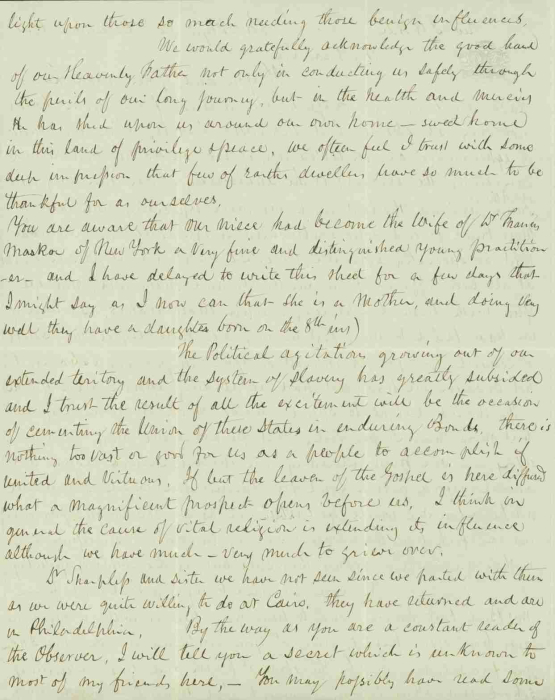 light upon those so much needing those benign influences.
We would gratefully acknowledge the good hand
of our Heavenly Father not only in conducting us safely through
the perils of our long journey, but in the health and mercies
He has shed upon us around our own home – sweet home
in this land of privilege & peace, we often feel I trust with some
deep impression that few of Earths dwellers have so much to be
thankful for as ourselves.
You are aware that our niece had become the Wife of Dr Francis
of New York a very fine and distinguished young practition
-er – and I have delayed to write this sheet for a few days that
I might say as I now can that she is a Mother, and doing very
well they have a daughter born on the 8th ins)
The Political agitations growing out of our
extended teritory and the system of slavery has greatly subsided
and I trust the result of all the excitement will be the occasion
of cementing the Union of these States in enduring Bonds, there is
nothing too vast or good for us as a people to accomplish if
united and virtuous, If but the leaven of the Gospel is here diffused
what a magnificent prospect opens before us, I think in
general the cause of vital religion is extending its influence
although we have much – very much to grieve over.
Dr Sharpless and sister we have not seen since we parted with them
as we were quite willing to do at Cairo, they have returned and are
in Philadelphia, By the way as you are a constant reader of
the Observer, I will tell you a secret which is unknown to
most of my friends here, – You may possibly have read some